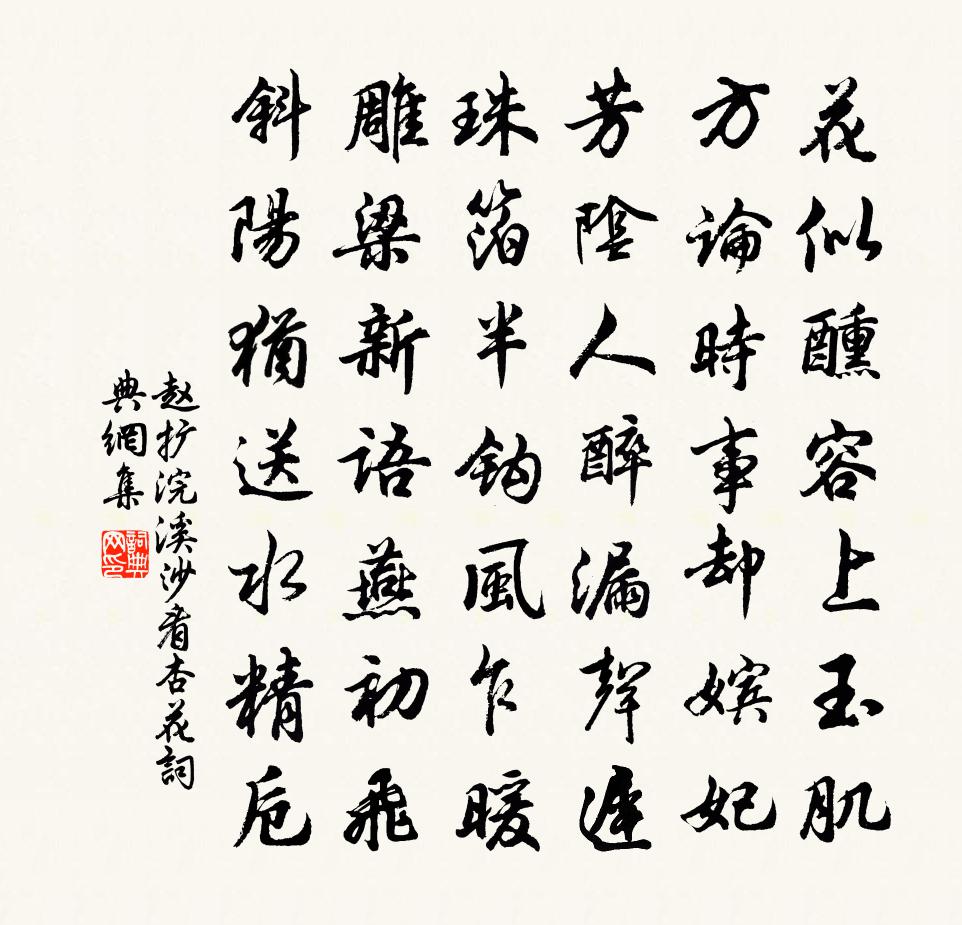 花似醺容上玉肌
方論時事却嬪妃
芳陰人醉漏聲遲
珠箔半鈎風乍暖
雕梁新語燕初飛
斜陽猶送水精卮
赵扩浣溪沙看杏花詞
典網集
詞典网印